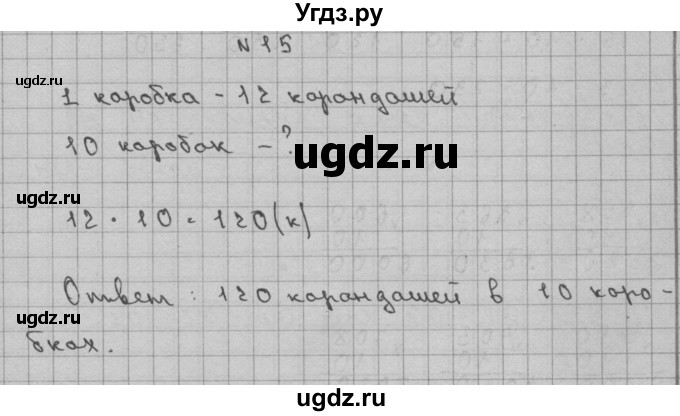 Угдз.ру
N 15
ugdz.ru
1 коробка - 12 карандашей
10 коробок - ?
ugdz.ru
ugdz.ru
12 · 10 = 120 (к)
Ответ : 120 карандашей в 10 коро-
ugdz.ru
бках.
ugdz.ru